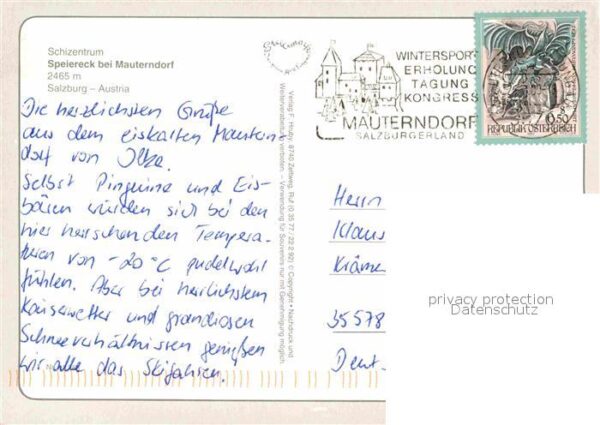 Schizentrum
Speiereck bei Mauterndorf
2465 m
Salzburg – Austria
Die herzlichsten Grüße
aus dem eiskalten Mautern-
dorf von Ilka.
Selbst Pinguine und Eis-
bären würden sich bei den
hier herrschenden Tempera-
turen von -20°C pudelwohl
fühlen. Aber bei herrlichstem
Kaiserwetter und grandiosen
Schneeverhältnissen genießen
wir alle das Skifahren!
Weiterverarbeitung verboten. – Verwendung für Souvenirs nur mit Genehmigung möglich.
WINTERSPORT
ERHOLUNG
TAGUNG
KONGRESS
MAUTERNDORF
SALZBURGERLAND
6.50
REPUBLIK ÖSTERREICH
Herrn
Klaus
Kräme
35578
Deut-
privacy protection
Datenschutz